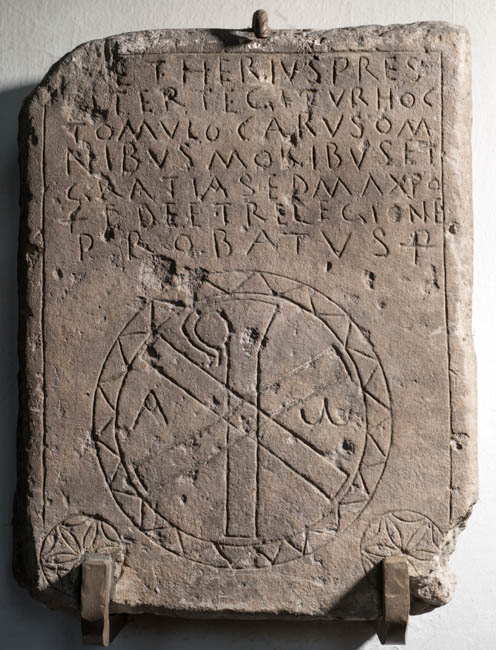 ETHERIVS PRES
TER TEGATVR HOC
TOMVLO CARVS OM
NIBVS MORIBVS ET
GRATIA SED MAXPO
FEDE ET RELEGIONE
PROBATVS ☧
Α ω